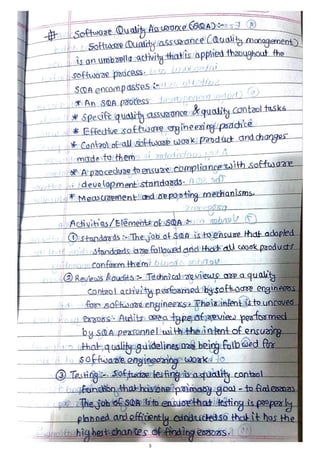 # Software Quality Assurance (SQA) :-
Software Quality assurance (Quality management)
is an umbrella activity that is applied throughout the
software process.
SQA encompasses :-
* An SQA process
* Specific quality assurance & quality control tasks
* Effective software engineering practice
* Control of all software work product and changes
made to them
* A procedure to ensure compliance with software
development standards.
* Measurement and reporting mechanisms.
Activities/Elements of SQA :-
① Standards :- The job of SQA is to ensure that adopted
standards are followed and that all work products
conform them
② Reviews & audits :- Technical reviews are a quality
control activity performed by software engineers
for software engineers. Their intent is to uncover
errors. Audits are a type of review performed
by SQA personnel with the intent of ensuring
that quality guidelines are being followed for
software engineering work.
③ Testing :- Software testing is a quality control
function that has one primary goal - to find errors
The job of SQA is to ensure that testing is properly
planned and efficiently conducted so that it has the
highest chances of finding errors.